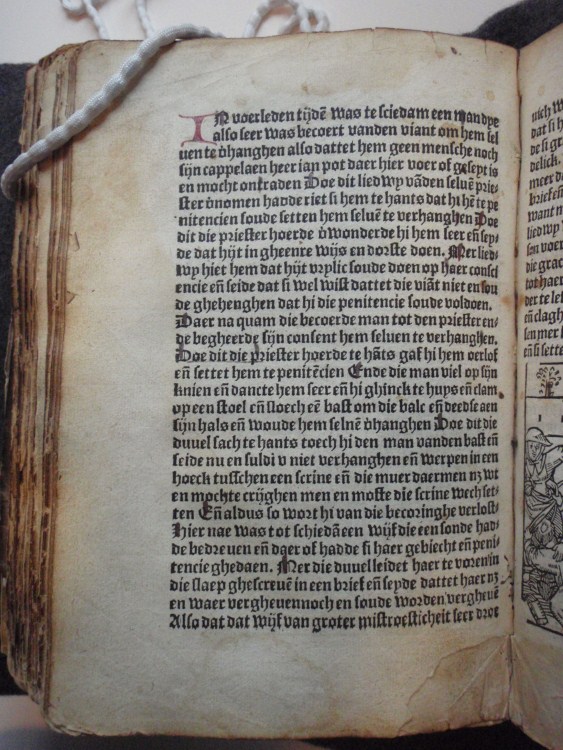 IN voerleden tijdē was te sciedam een man dye
also seer was becoert vanden viant om hem sel
uen te v̄hanghen also dattet hem geen mensche noch
sijn cappelaen heer ian pot daer hier voer of geseyt is
en mocht ontraden Doe dit liedwy vādē seluē prie-
ster v̄nomen hadde riet si hem te hants dat hi hē te pe
nitencien soude setten hem seluē te verhanghen Doe
dit die priester hoerde v̄wonderde hi hem seer eñ sey-
de dat hijt in gheenre wijs en dorste doen. Mer lied-
wy hiet hem dat hijt vrylic soude doen op haer consci
encie eñ seide dat si wel wist dattet die viāt niet en sou
de ghehenghen dat hi die penitencie soude voldoen.
Daer na quam die becoerde man tot den priester en-
de begheerde sijn consent hem seluen te verhanghen.
Doe dit die priester hoerde te hāts gaf hi hem oerlof
eñ settet hem te penitēcien Ende die man viel op sijn
knien eñ dancte hem seer eñ hi ghinck te huys eñ clam
op een stoel eñ sloech eē bast om die balc eñ deedse aen
sijn hals eñ woude hem seluē v̄hanghen Doe dit die
duuel sach te hants toech hi den man vanden bast eñ
seide nu en suldi v niet verhanghen eñ werpen in een
hoeck tusschen een scrine eñ die muer daermen nz wt
en mochte crijghen men en moste die scrine wech set-
ten Eñ aldus so wort hi van die becoringhe verlost
Hier nae was tot schiedā een wijf die een sonde had-
de bedreuen eñ daer of hadde si haer gebiecht eñ peni-
tencie ghedaen. Mer die duuel leidet haer te voren in
die slaep ghescreuē in een brief eñ seyde dattet haer nz
en waer vergheuen noch en soude worden vergheuē
Also dat dat wijf van groter mistroesticheit seer drot